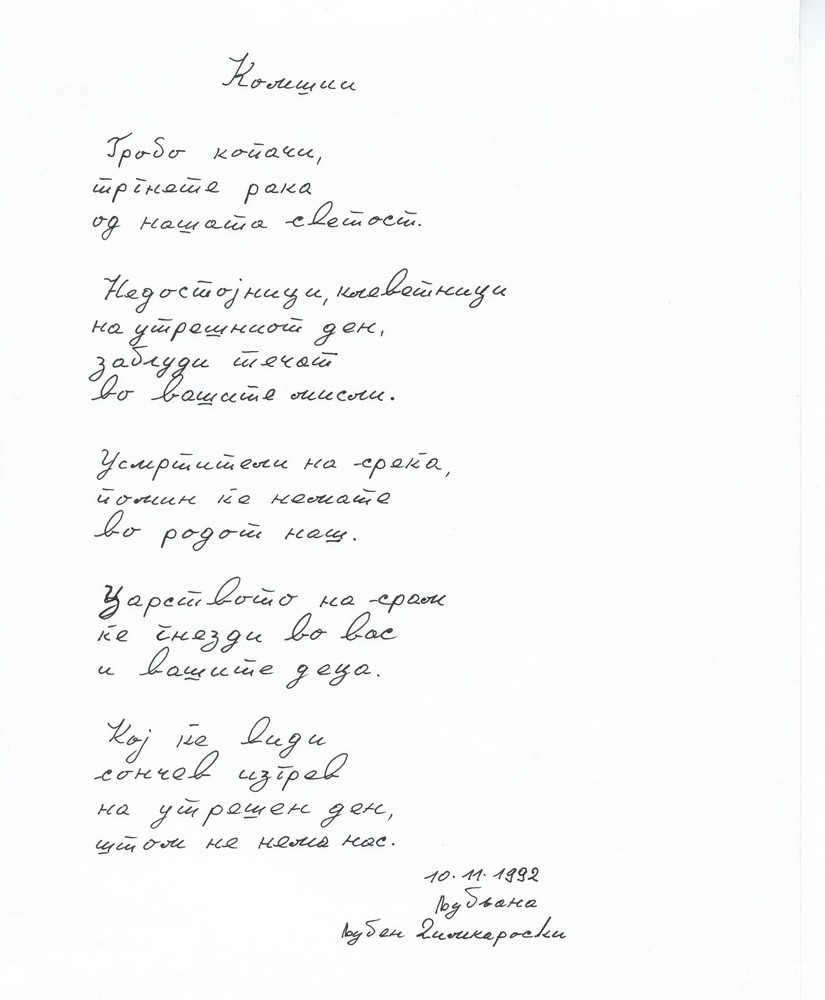 Комшии
Гробо копачи,
тргнете рака
од нашата светост.
Недостојници, клеветници
на утрешниот ден,
заблуди течат
во вашите мисли.
Усмртители на среќа,
помин ќе немате
во родот наш.
Царството на срам
ќе гнезди во вас
и вашите деца.
Кој ќе види
сончев изгрев
на утрешен ден,
штом не нема нас.
10.11.1992
Љубљана
Љубен Димкароски